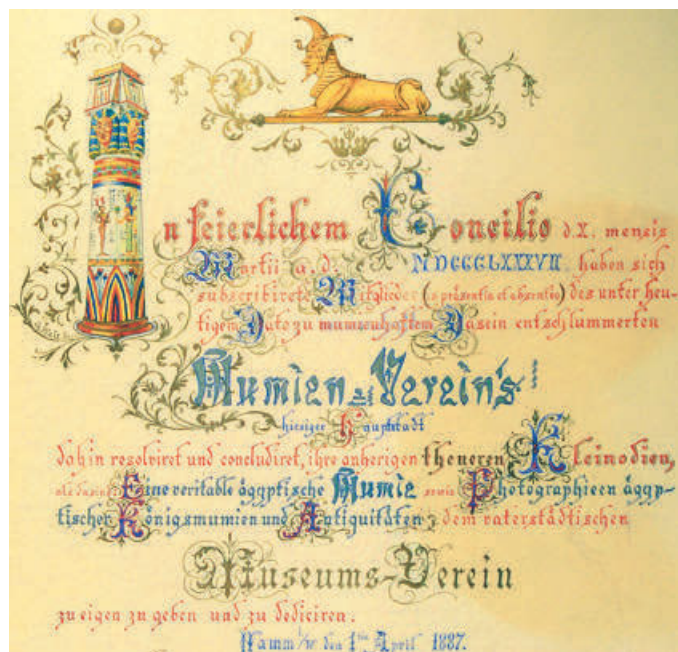 In feierlichem Concilio d. X. mensis
Martii a. d. MDCCCLXXXVII. haben sich
subscribirete Mitglieder (in präsentia et absentia) des unter heu-
tigem Dato zu mumienhaftem Dasein entschlummerten
Mumien-Verein's
hiesiger Hauptstadt
dahin resolviret und concludiret, ihre anherigen theneren Kleinodien,
als da sind: Eine veritable ägyptische Mumie sowie Photographieen ägyp-
tischer Königsmumien und Antiquitäten, dem vaterstädtischen
Museums-Verein
zu eigen zu geben und zu dediciren.
Hamm i/W. den 1ten April 1887.